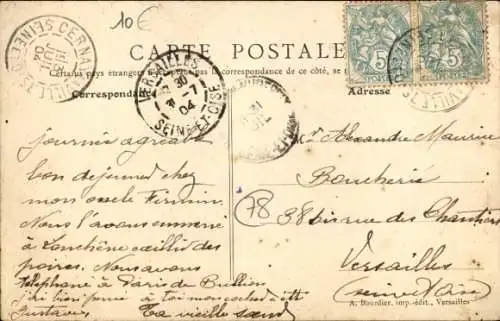 10€
CARTE POSTALE
Certains pays étrangers la correspondance de ce côté, se
Correspondance
Adresse
CERNAY
SEINE ET
VERSAILLES
31 -7
04
SEINE-ET-OISE
5
5
journée agréable
bon déjeuner chez
mon oncle Firmin
Nous l'avons emmené
à cueillir des
poires. Nous avons
téléphoné à Paris de Bullion
j'ai bien pensé à toi mon
Gustave Ta vieille
Mr Alexandre Maurice
Boucherie
78
38 bis rue des Chantiers
Versailles
Seine
A. Bourdier, imp.-édit., Versailles